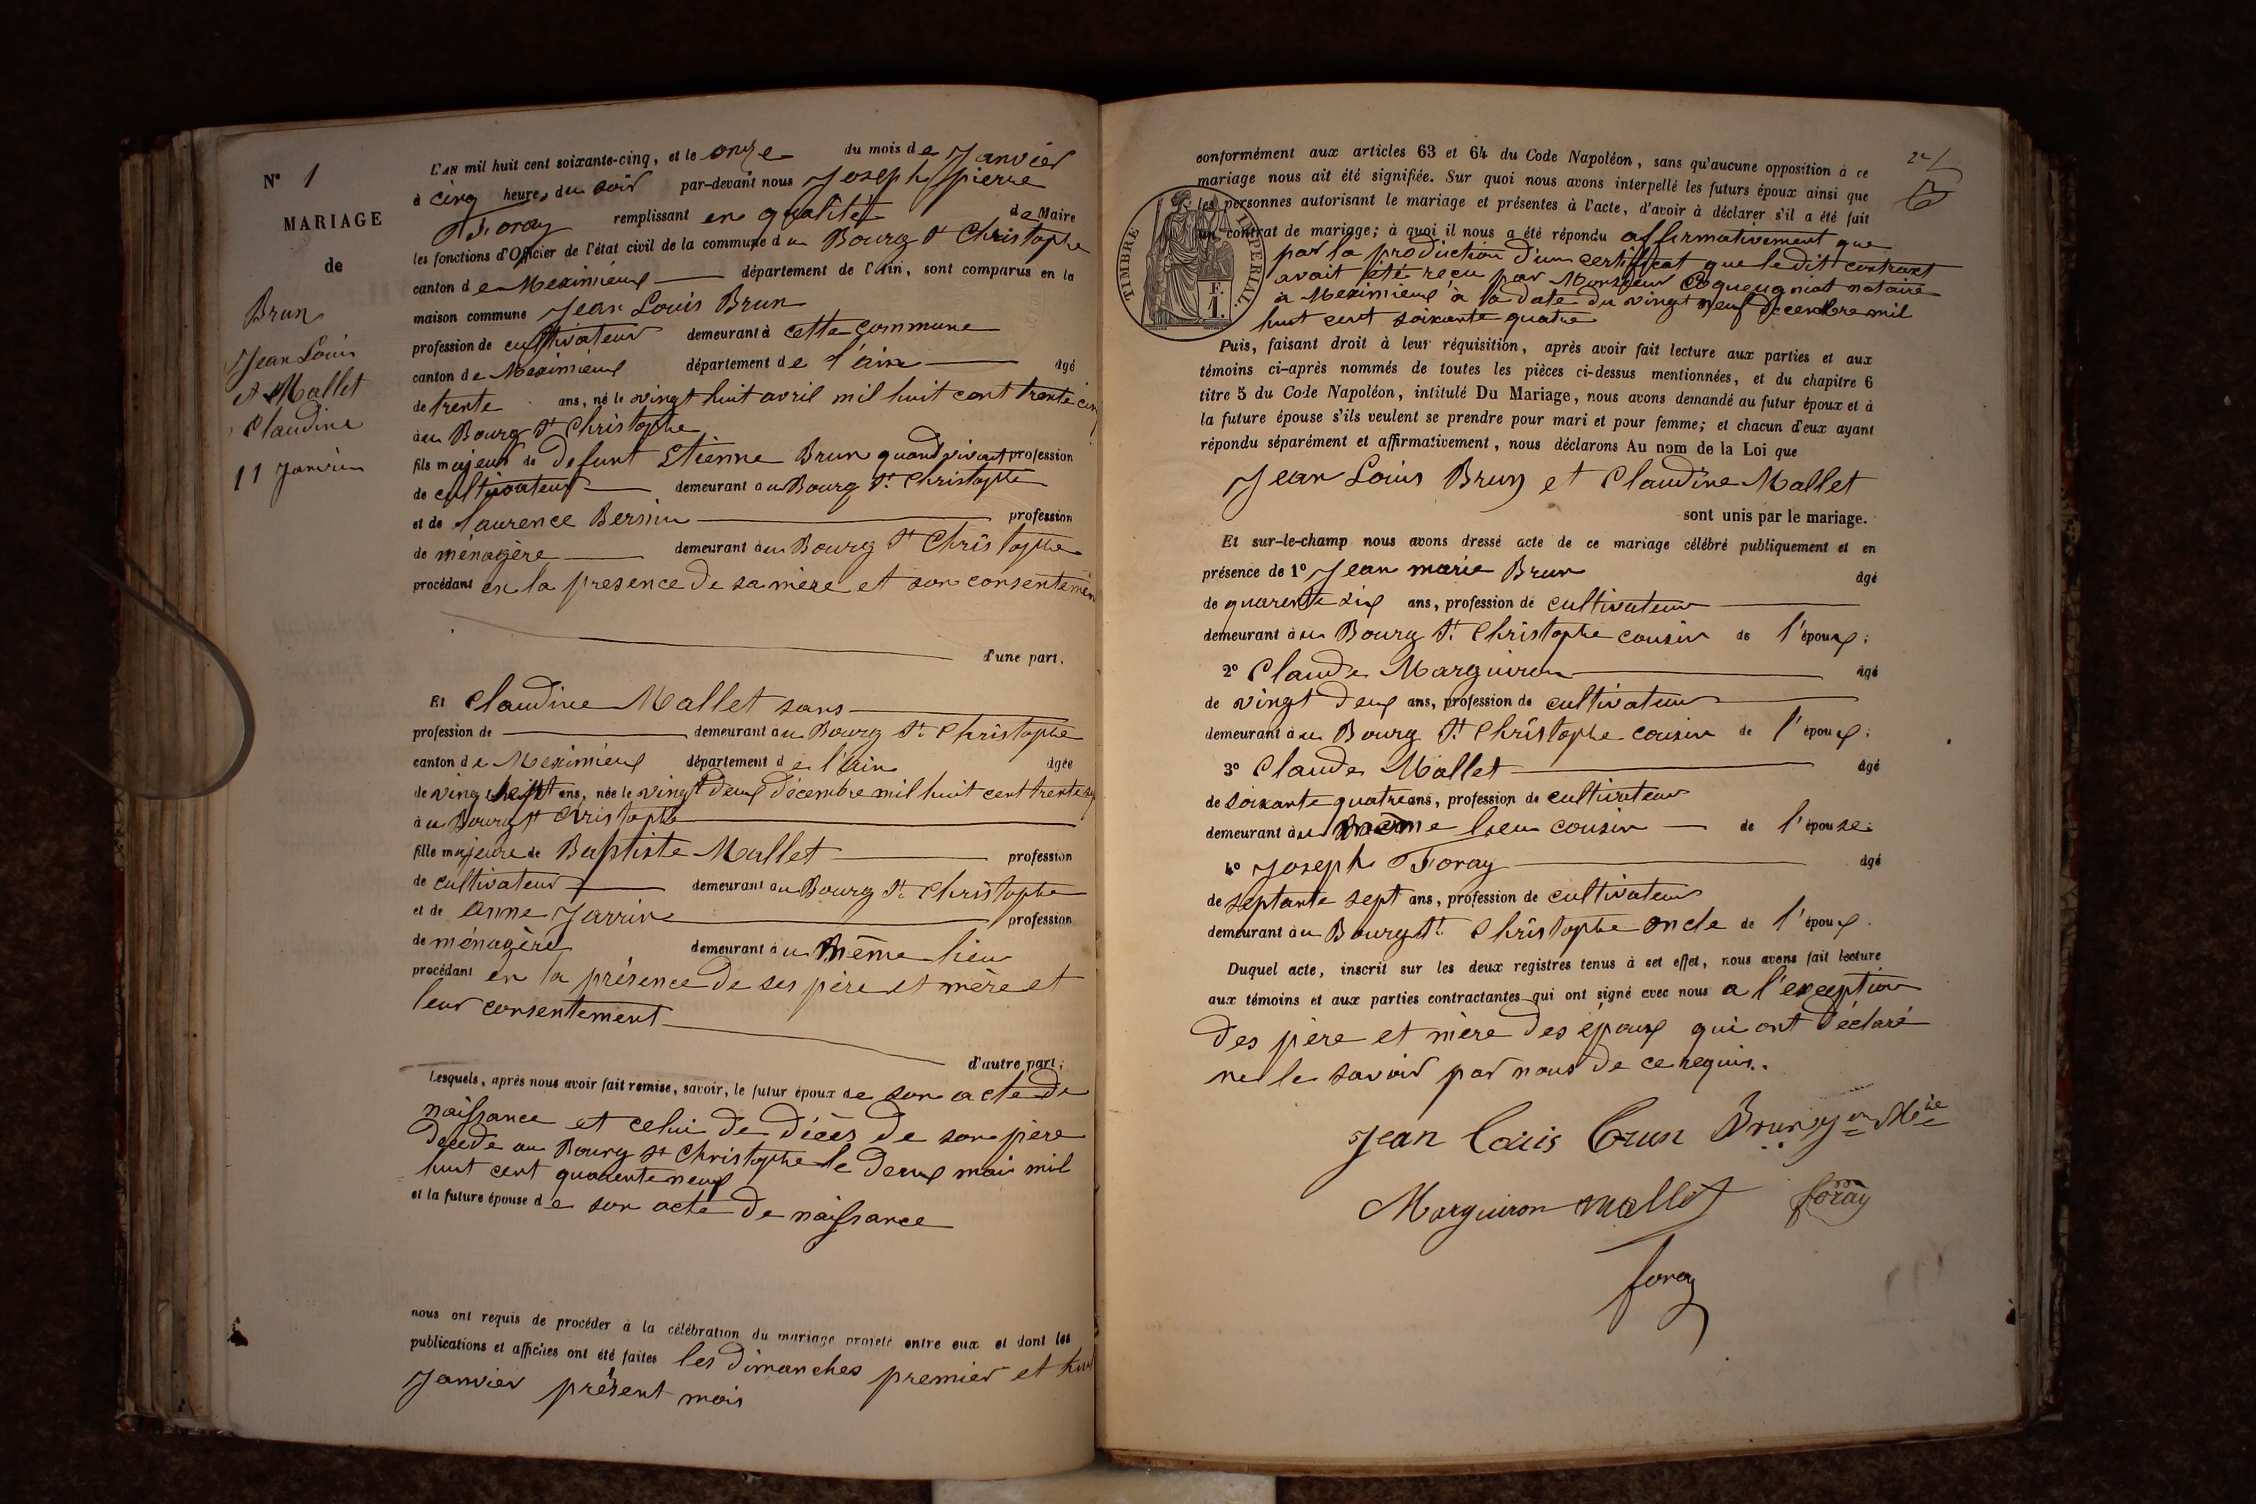 N° 1
MARIAGE
de
Brun
Jean Louis
et Mallet
Claudine
11 Janvier
L'AN mil huit cent soixante-cinq, et le onze du mois de Janvier
à cinq heures du soir par-devant nous Joseph pierre
Foray remplissant en qualité de Maire
les fonctions d'Officier de l'état civil de la commune du Bourg St Christophe
canton de Meximieux département de l'Ain, sont comparus en la
maison commune Jean Louis Brun
profession de cultivateur demeurant à cette commune
canton de Meximieux département de l'ain âgé
de trente ans, né le vingt huit avril mil huit cent trente cinq
à au Bourg St Christophe
fils majeur de defunt Etienne Brun quand vivant profession
de cultivateur demeurant au Bourg St Christophe
et de laurence Bernin profession
de ménagère demeurant à au Bourg St Christophe
procédant en la presence de sa mère et son consentement
d'une part.
Et Claudine Mallet sans
profession de demeurant à au Bourg St Christophe
canton de Meximieux département de l'ain âgée
de vingt ans, née le vingt deux décembre mil huit cent trente
à au Bourg St Christophe
fille majeure de Baptiste Mallet profession
de cultivateur demeurant au Bourg St Christophe
et de anne Jarrin profession
de ménagère demeurant à au même lieu
procédant en la présence de ses père et mère et
leur consentement
d'autre part;
Lesquels, après nous avoir fait remise, savoir, le futur époux de son acte de
naissance et celui de décès de son père
décédé au Bourg St Christophe le deux mai mil
huit cent quarante neuf
et la future épouse de son acte de naissance
nous ont requis de procéder à la célébration du mariage projeté entre eux et dont les
publications et affiches ont été faites les dimanches premier et huit
Janvier présent mois
conformément aux articles 63 et 64 du Code Napoléon, sans qu'aucune opposition à ce
mariage nous ait été signifiée. Sur quoi nous avons interpellé les futurs époux ainsi que
les personnes autorisant le mariage et présentes à l'acte, d'avoir à déclarer s'il a été fait
un contrat de mariage; à quoi il nous a été répondu affirmativement que
par la production d'un certificat que le dit contrat
avait été reçu par Monsieur Coqueugniot notaire
à Meximieux à la date du vingt neuf décembre mil
huit cent soixante quatre
TIMBRE IMPERIAL
F.
1.
Puis, faisant droit à leur réquisition, après avoir fait lecture aux parties et aux
témoins ci-après nommés de toutes les pièces ci-dessus mentionnées, et du chapitre 6
titre 5 du Code Napoléon, intitulé Du Mariage, nous avons demandé au futur époux et à
la future épouse s'ils veulent se prendre pour mari et pour femme; et chacun d'eux ayant
répondu séparément et affirmativement, nous déclarons Au nom de la Loi que
Jean Louis Brun et Claudine Mallet
sont unis par le mariage.
Et sur-le-champ nous avons dressé acte de ce mariage célébré publiquement et en
présence de 1° Jean marie Brun âgé
de quarente six ans, profession de cultivateur
demeurant à au Bourg St Christophe cousin de l'époux;
2° Claude Marguiron âgé
de vingt deux ans, profession de cultivateur
demeurant à au Bourg St Christophe cousin de l'époux;
3° Claude Mallet âgé
de soixante quatre ans, profession de cultivateur
demeurant à au même lieu cousin de l'épouse;
4° Joseph Foray âgé
de septante sept ans, profession de cultivateur
demeurant à au Bourg St Christophe oncle de l'époux.
Duquel acte, inscrit sur les deux registres tenus à cet effet, nous avons fait lecture
aux témoins et aux parties contractantes qui ont signé avec nous a l'exception
des père et mère des époux qui ont déclaré
ne le savoir par nous de ce requis.
Jean Louis Brun Brun
Marguiron Mallet foray
foray